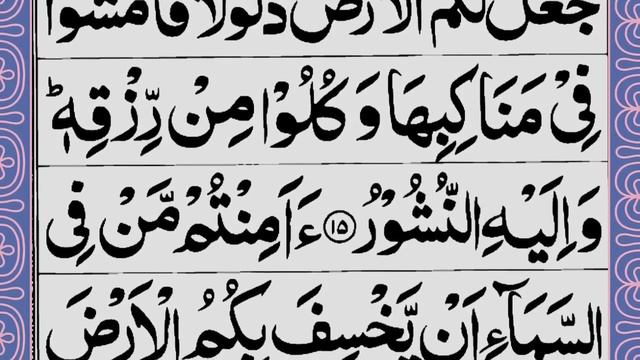 جَعَلَ لَكُمُ الْاَرْضَ ذَلُوْلًا فَامْشُوْا
فِیْ مَنَاكِبِهَا وَكُلُوْا مِنْ رِّزْقِهٖؕ
وَاِلَیْهِ النُّشُوْرُ ﴿۱۵﴾ ءَاَمِنْتُمْ مَّنْ فِی
السَّمَآءِ اَنْ یَّخْسِفَ بِكُمُ الْاَرْضَ